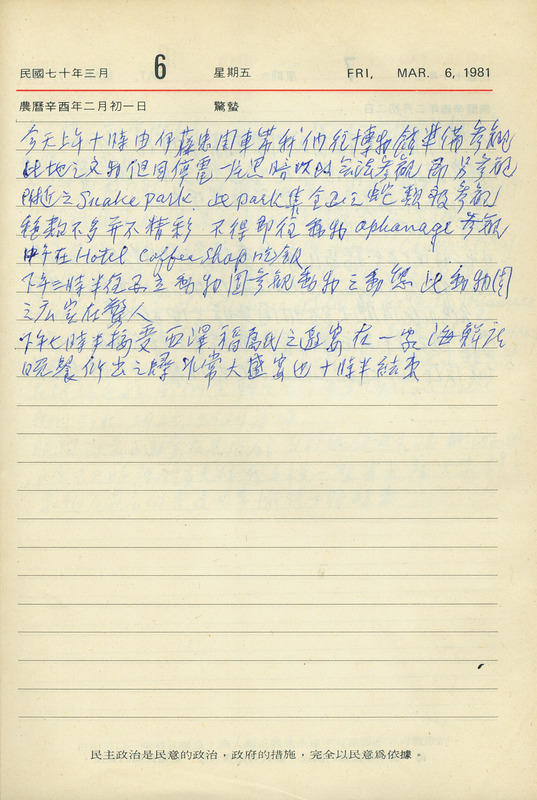 民國七十年三月 6 星期五 FRI, MAR. 6, 1981
農曆辛酉年二月初一日 驚蟄
今天上午十時由伊藤忠開車帶我們往博物館準備參觀
此地之文物但因停電一片黑暗 參觀 參觀
附近之Snake park. 此park集全亞之蛇類 參觀
種類不多并不精彩 不得即往動物ophanage參觀
中午在Hotel Coffee Shop吃飯
下午三時半往 動物園參觀動物之動態 此動物園
之 人
下午七時半接受西澤 氏之邀宴在一家海鮮店
晚餐所出之 非常大 宴也十時半結束
民主政治是民意的政治，政府的措施，完全以民意爲依據。